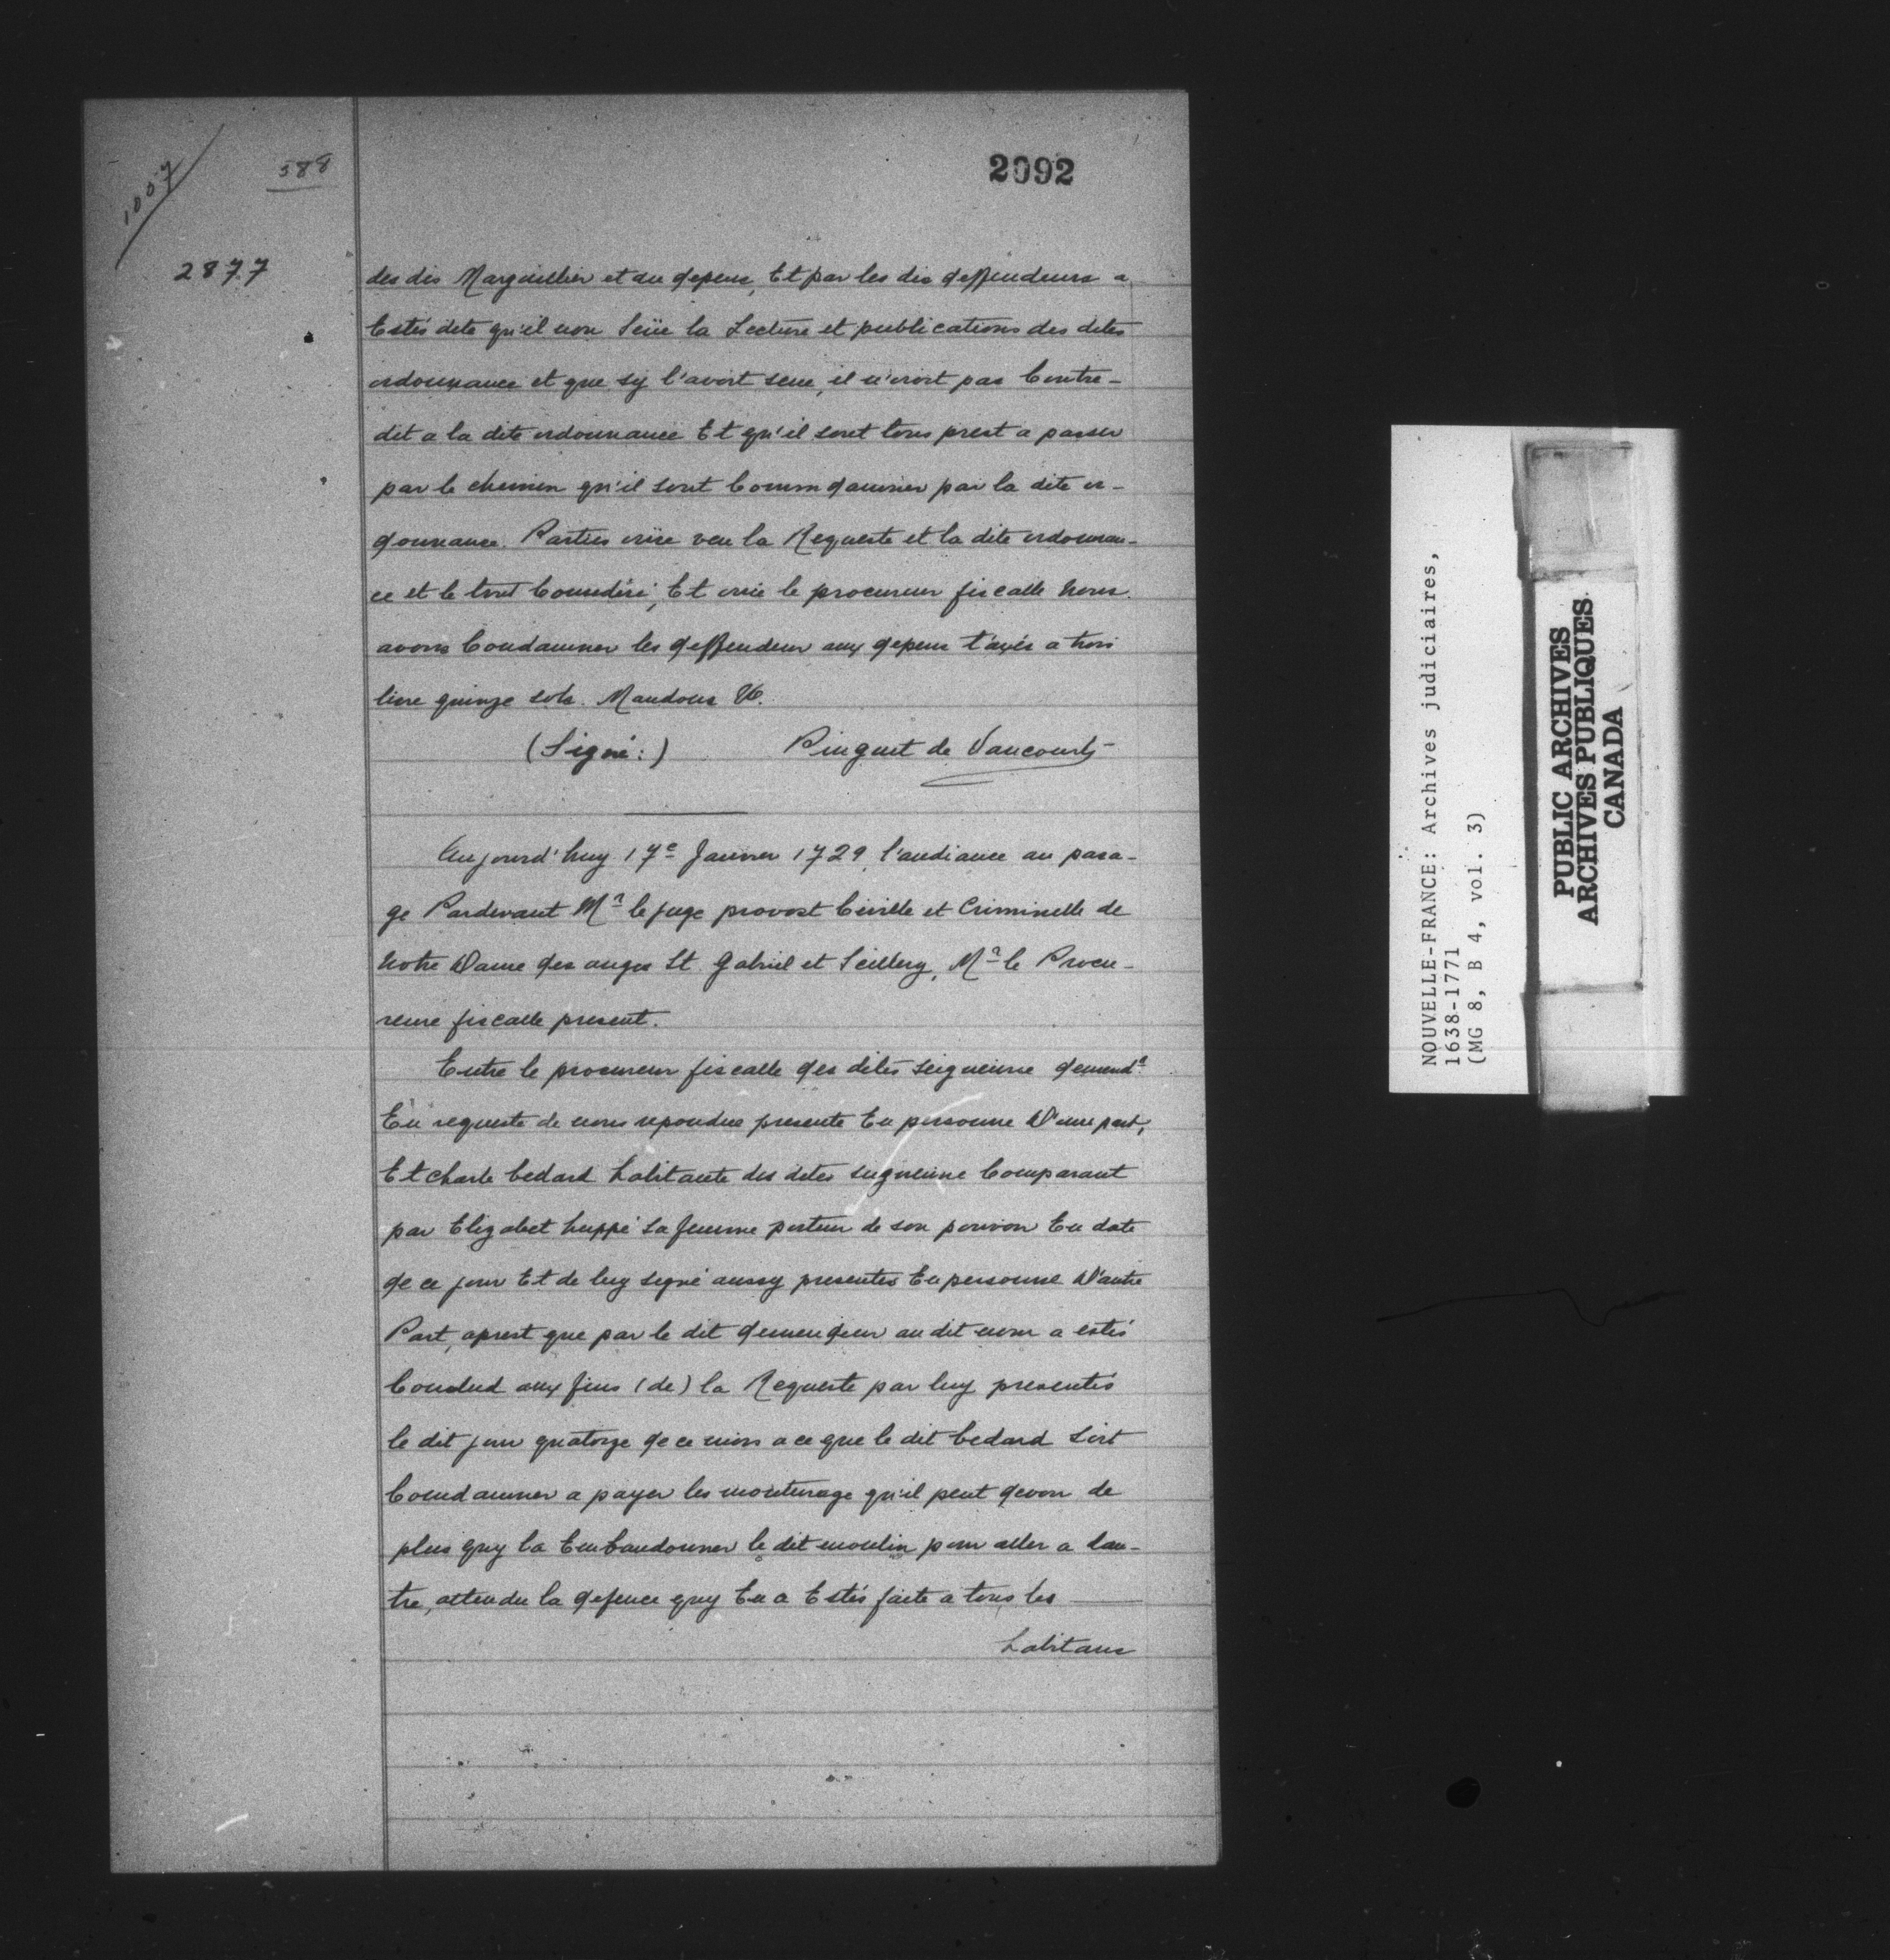 1007
588
2092
2877
des dis Marguillier et au depens, Et par les dis deffendeurs a
Estés dite qu'il non Seüe la Lecture et publications des dites
ordonnance et que sy l'avoit seue, il n'oroit pas Contre-
dit a la dite ordonnance Et qu'il sont tous prest a passer
par le chemin qu'il sont Commdamner par la dite or-
donnance. Parties ouïe veu la Requeste et la dite ordonnan-
ce et le tout Considéré, Et ouie le procureur fiscalle nous
avons Condamner les deffendeur aux depens taxés a trois
livre quinze sols. Mandons &c.
(Signé:) Pinguet de Vaucourt
Aujourd'huy 17e Janvier 1729, l'audiance au para-
ge Pardevant Mr le juge provost Civille et Criminelle de
Notre Dame des anges St Gabriel et Seillery, Mr le Procu-
reure fiscalle present.
Entre le procureur fiscalle des dites Seigneurie demandr
En requeste de nous repondue presente En personne D'une part,
Et charle bedard habitante des dites seigneurie Comparant
par Elizabet huppé sa femme porteur de son pouvoir En date
de ce jour Et de luy signé aussy presentes En personne D'autre
Part, aprest que par le dit demendeur au dit nom a estés
Conclud aux fins (de) la Requeste par luy presentés
le dit jour quatorze de ce mois a ce que le dit bedard soit
Comdamner a payer les mouturage qu'il peut devoir de
plus quy la Embandonner le dit moulin pour aller a lau-
tre, attendu la defence quy En a Estés faite a tous les
habitans
NOUVELLE-FRANCE: Archives judiciaires,
1638-1771
(MG 8, B 4, vol. 3)
PUBLIC ARCHIVES
ARCHIVES PUBLIQUES
CANADA